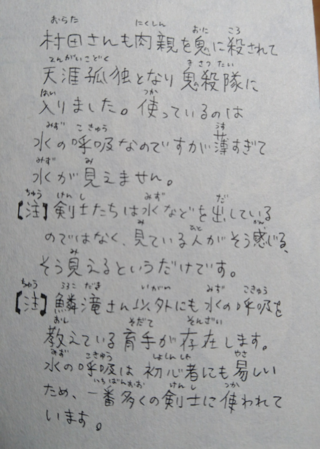 村田さんも肉親を鬼に殺されて
天涯孤独となり鬼殺隊に
入りました。使っているのは
水の呼吸なのですが薄すぎて
水が見えません。
【注】剣士たちは水などを出している
のではなく、見ている人がそう感じる、
そう見えるというだけです。
【注】鱗滝さん以外にも水の呼吸を
教えている育手が存在します。
水の呼吸は初心者にも易しい
ため、一番多くの剣士に使われて
います。